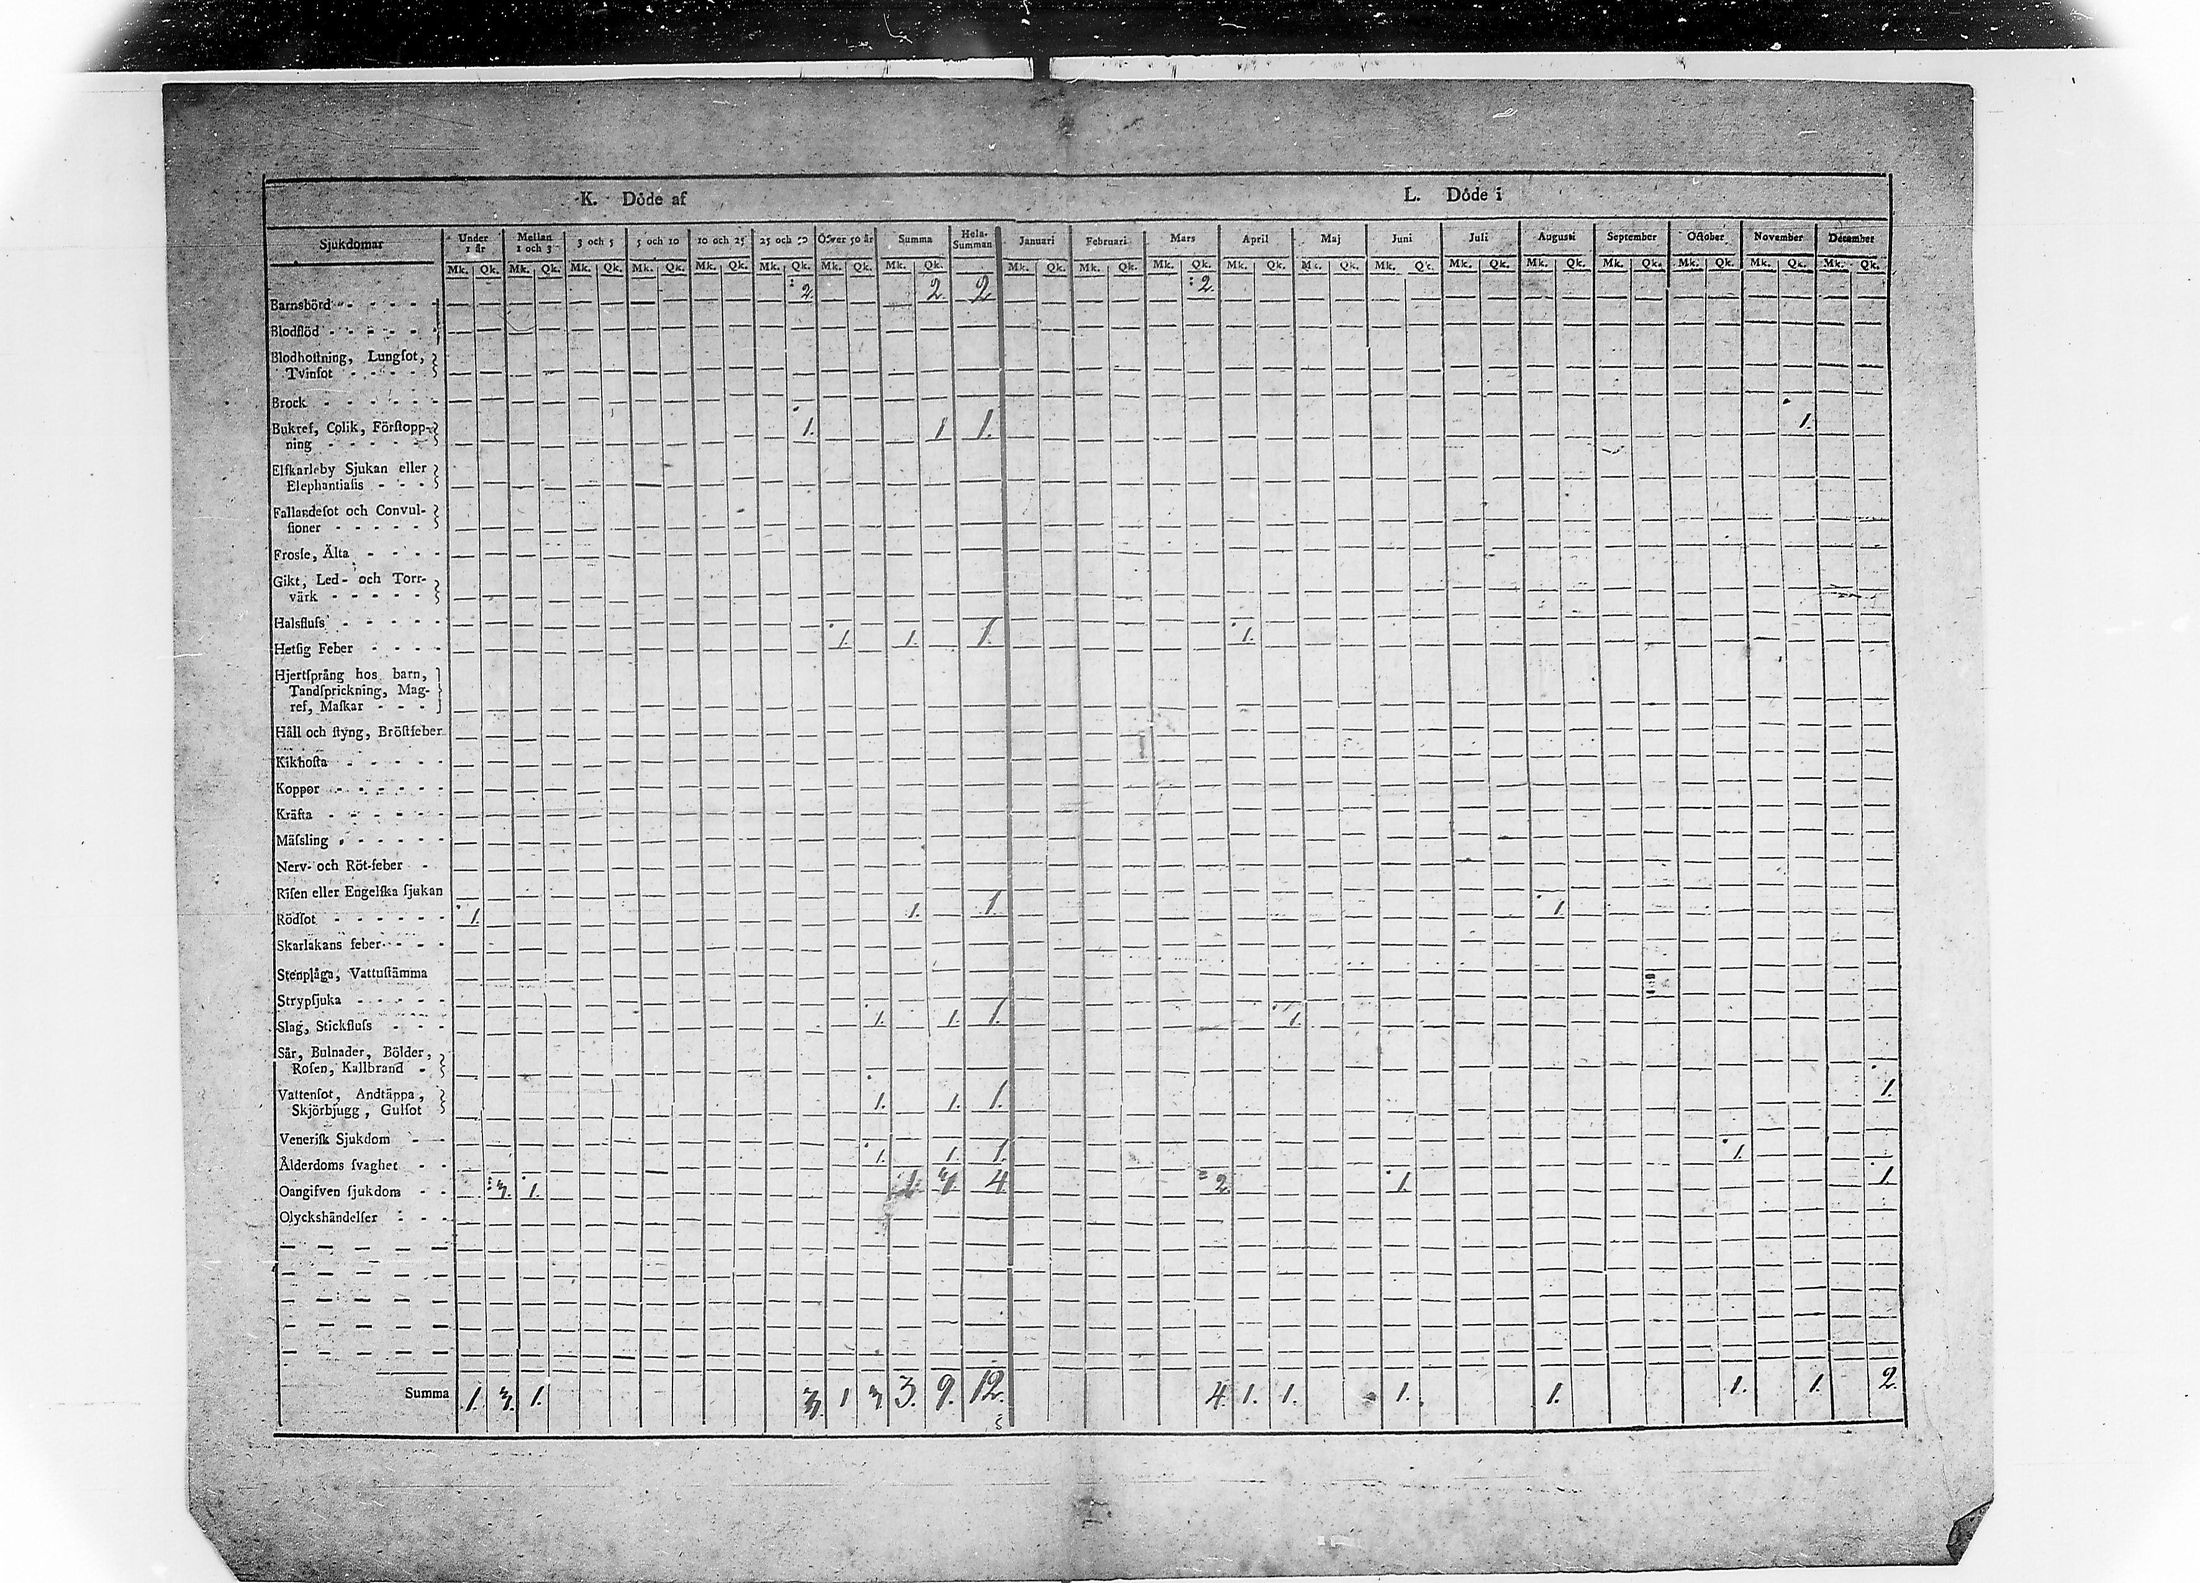 K. Döde af L. Döde i
Sjukdomar Under 1 år Mellan 1 och 3 3 och 5 5 och 10 10 och 25 25 och 50 Öfver 50 år Summa Hela-Summan Januari Februari Mars April Maj Juni Juli Augusti September October November December
Mk. Qk. Mk. Qk. Mk. Qk. Mk. Qk. Mk. Qk. Mk. Qk. Mk. Qk. Mk. Qk. Mk. Qk. Mk. Qk. Mk. Qk. Mk. Qk. Mk. Qk. Mk. Qk. Mk. Qk. Mk. Qk. Mk. Qk. Mk. Qk. Mk. Qk. Mk. Qk.
Barnsbörd 2. 2. 2 2
Blodflöd
Blodhoſtning, Lungſot,
Tvinſot
Brock
Bukref, Colik, Förſtopp-
ning 1. 1 1. 1.
Elfkarleby Sjukan eller
Elephantiaſis
Fallandeſot och Convul-
ſioner
Frosſe, Älta
Gikt, Led- och Torr-
värk
Halsfluſs
Hetſig Feber 1. 1. 1. 1.
Hjertſprång hos barn,
Tandſprickning, Mag-
ref, Maſkar
Håll och ſtyng, Bröſtfeber
Kikhoſta
Koppor
Kräfta
Mäſsling
Nerv- och Röt-feber
Riſen eller Engelſka ſjukan
Rödſot 1. 1. 1. 1.
Skarlakans feber
Stenplåga, Vattuſtämma
Strypſjuka
Slag, Stickfluſs 1. 1. 1. 1.
Sår, Bulnader, Bölder,
Roſen, Kallbrand
Vattenſot, Andtäppa,
Skjörbjugg, Gulſot 1. 1. 1. 1.
Veneriſk Sjukdom
Ålderdoms ſvaghet 1. 1. 1. 1.
Oangifven ſjukdom 3. 1. 1. 3. 4 2. 1. 1.
Olyckshändelſer
Summa 1. 3. 1. 3. 1 3. 3. 9. 12. 4. 1. 1. 1. 1. 1. 1. 2.